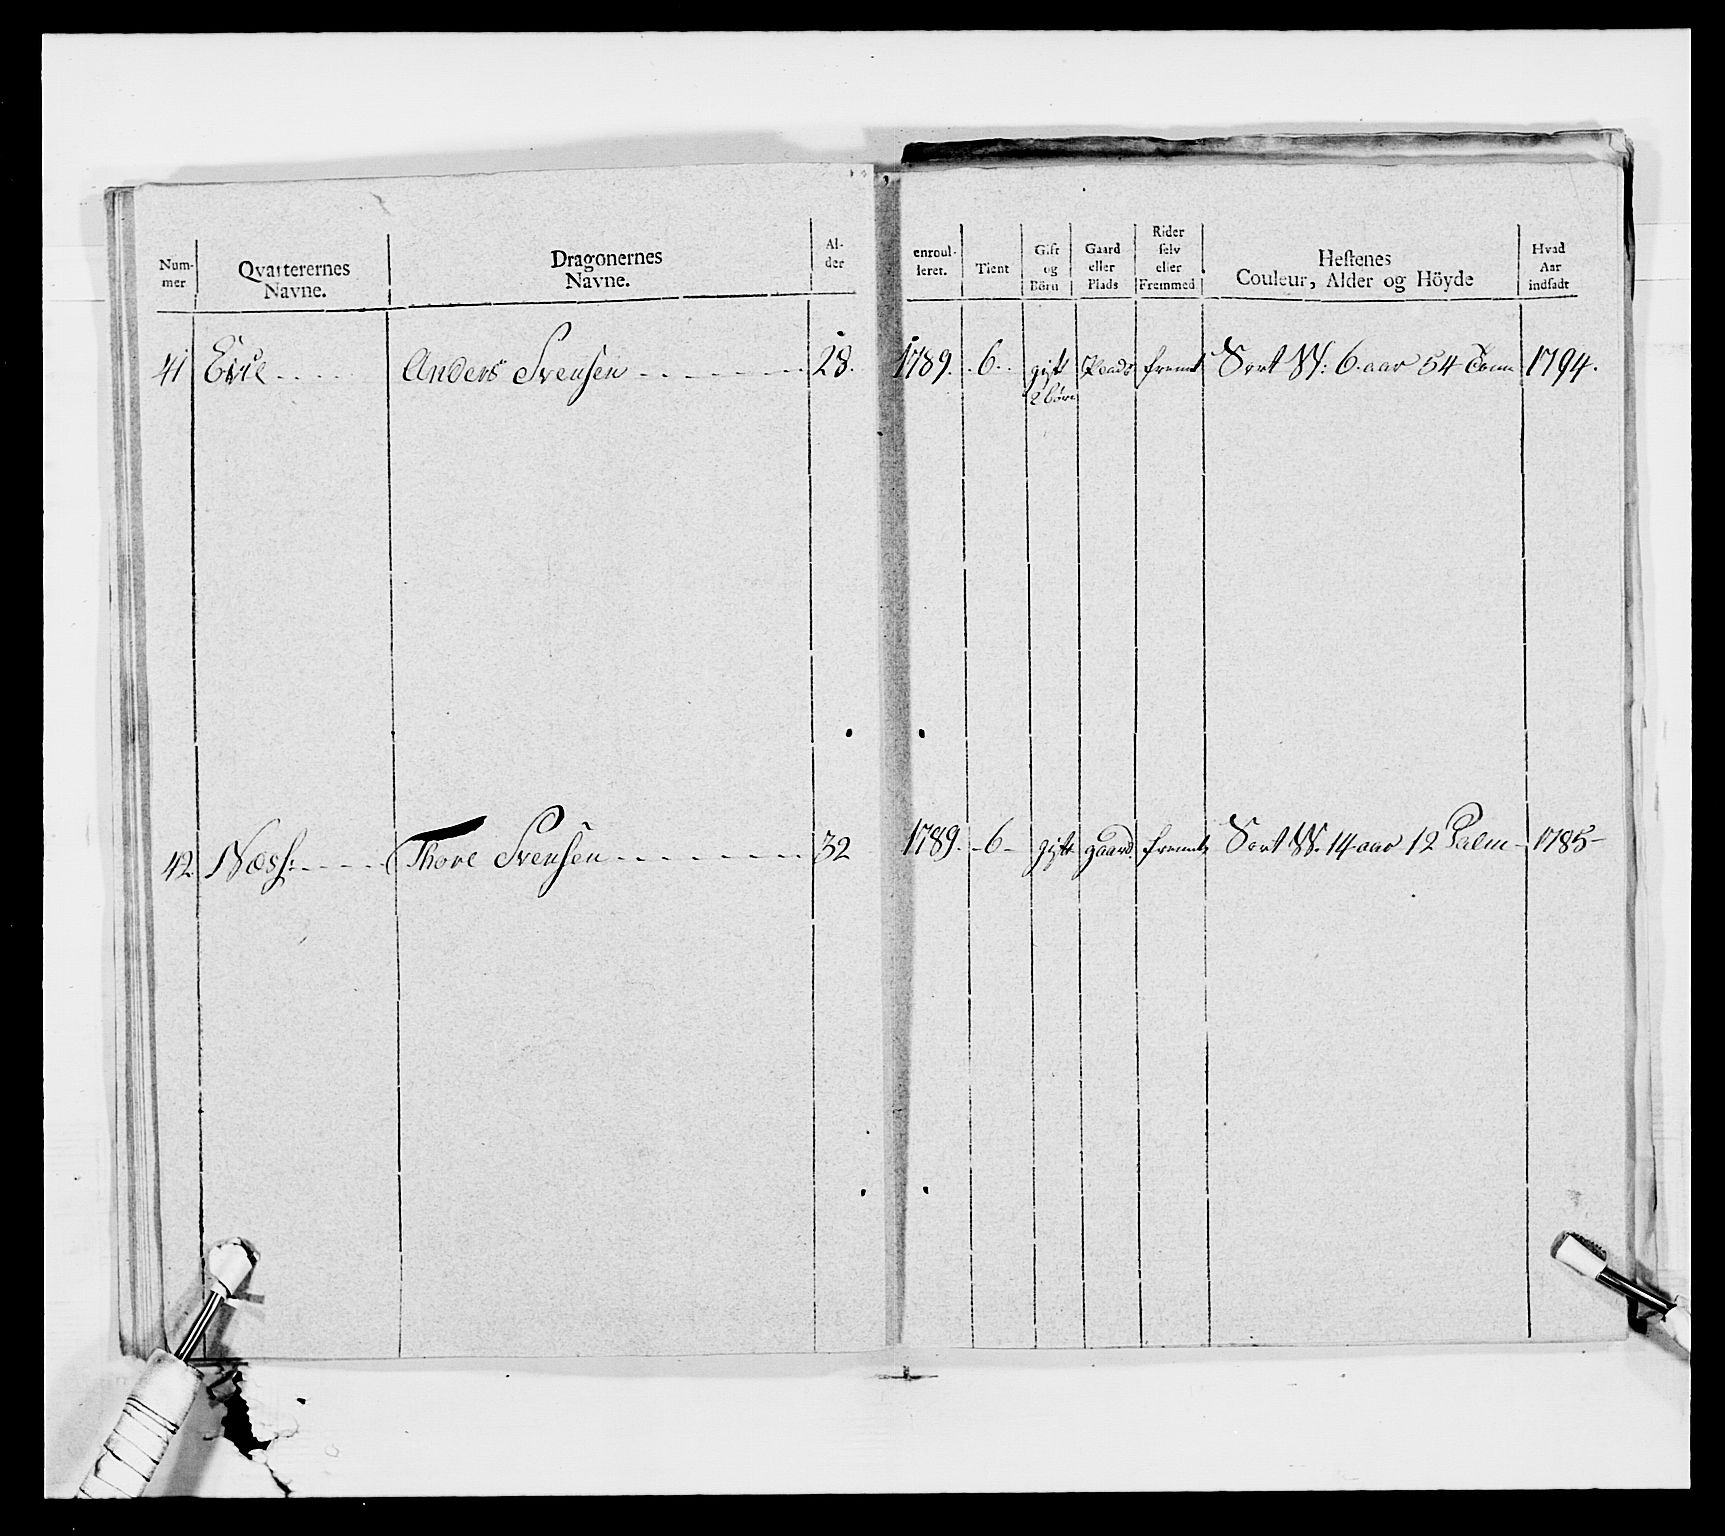 Num-
mer
Qvarterernes
Navne.
Dragonernes
Navne.
Al-
der
enroul-
leret.
Tient
Gift
og
Börn
Gaard
eller
Plads
Rider
selv
eller
Fremmed
Hestenes
Couleur, Alder og Höyde
Hvad
Aar
indsadt
41 Evie Anders Svensen 28. 1789. 6. gift Plads fremt Sort W: 6 aar 54 Tom 1794.
2 börn
42. Næss: Thore Svensen 32 1789. 6 gift gaard. fremt Sort W. 14 aar 12 Palm 1785